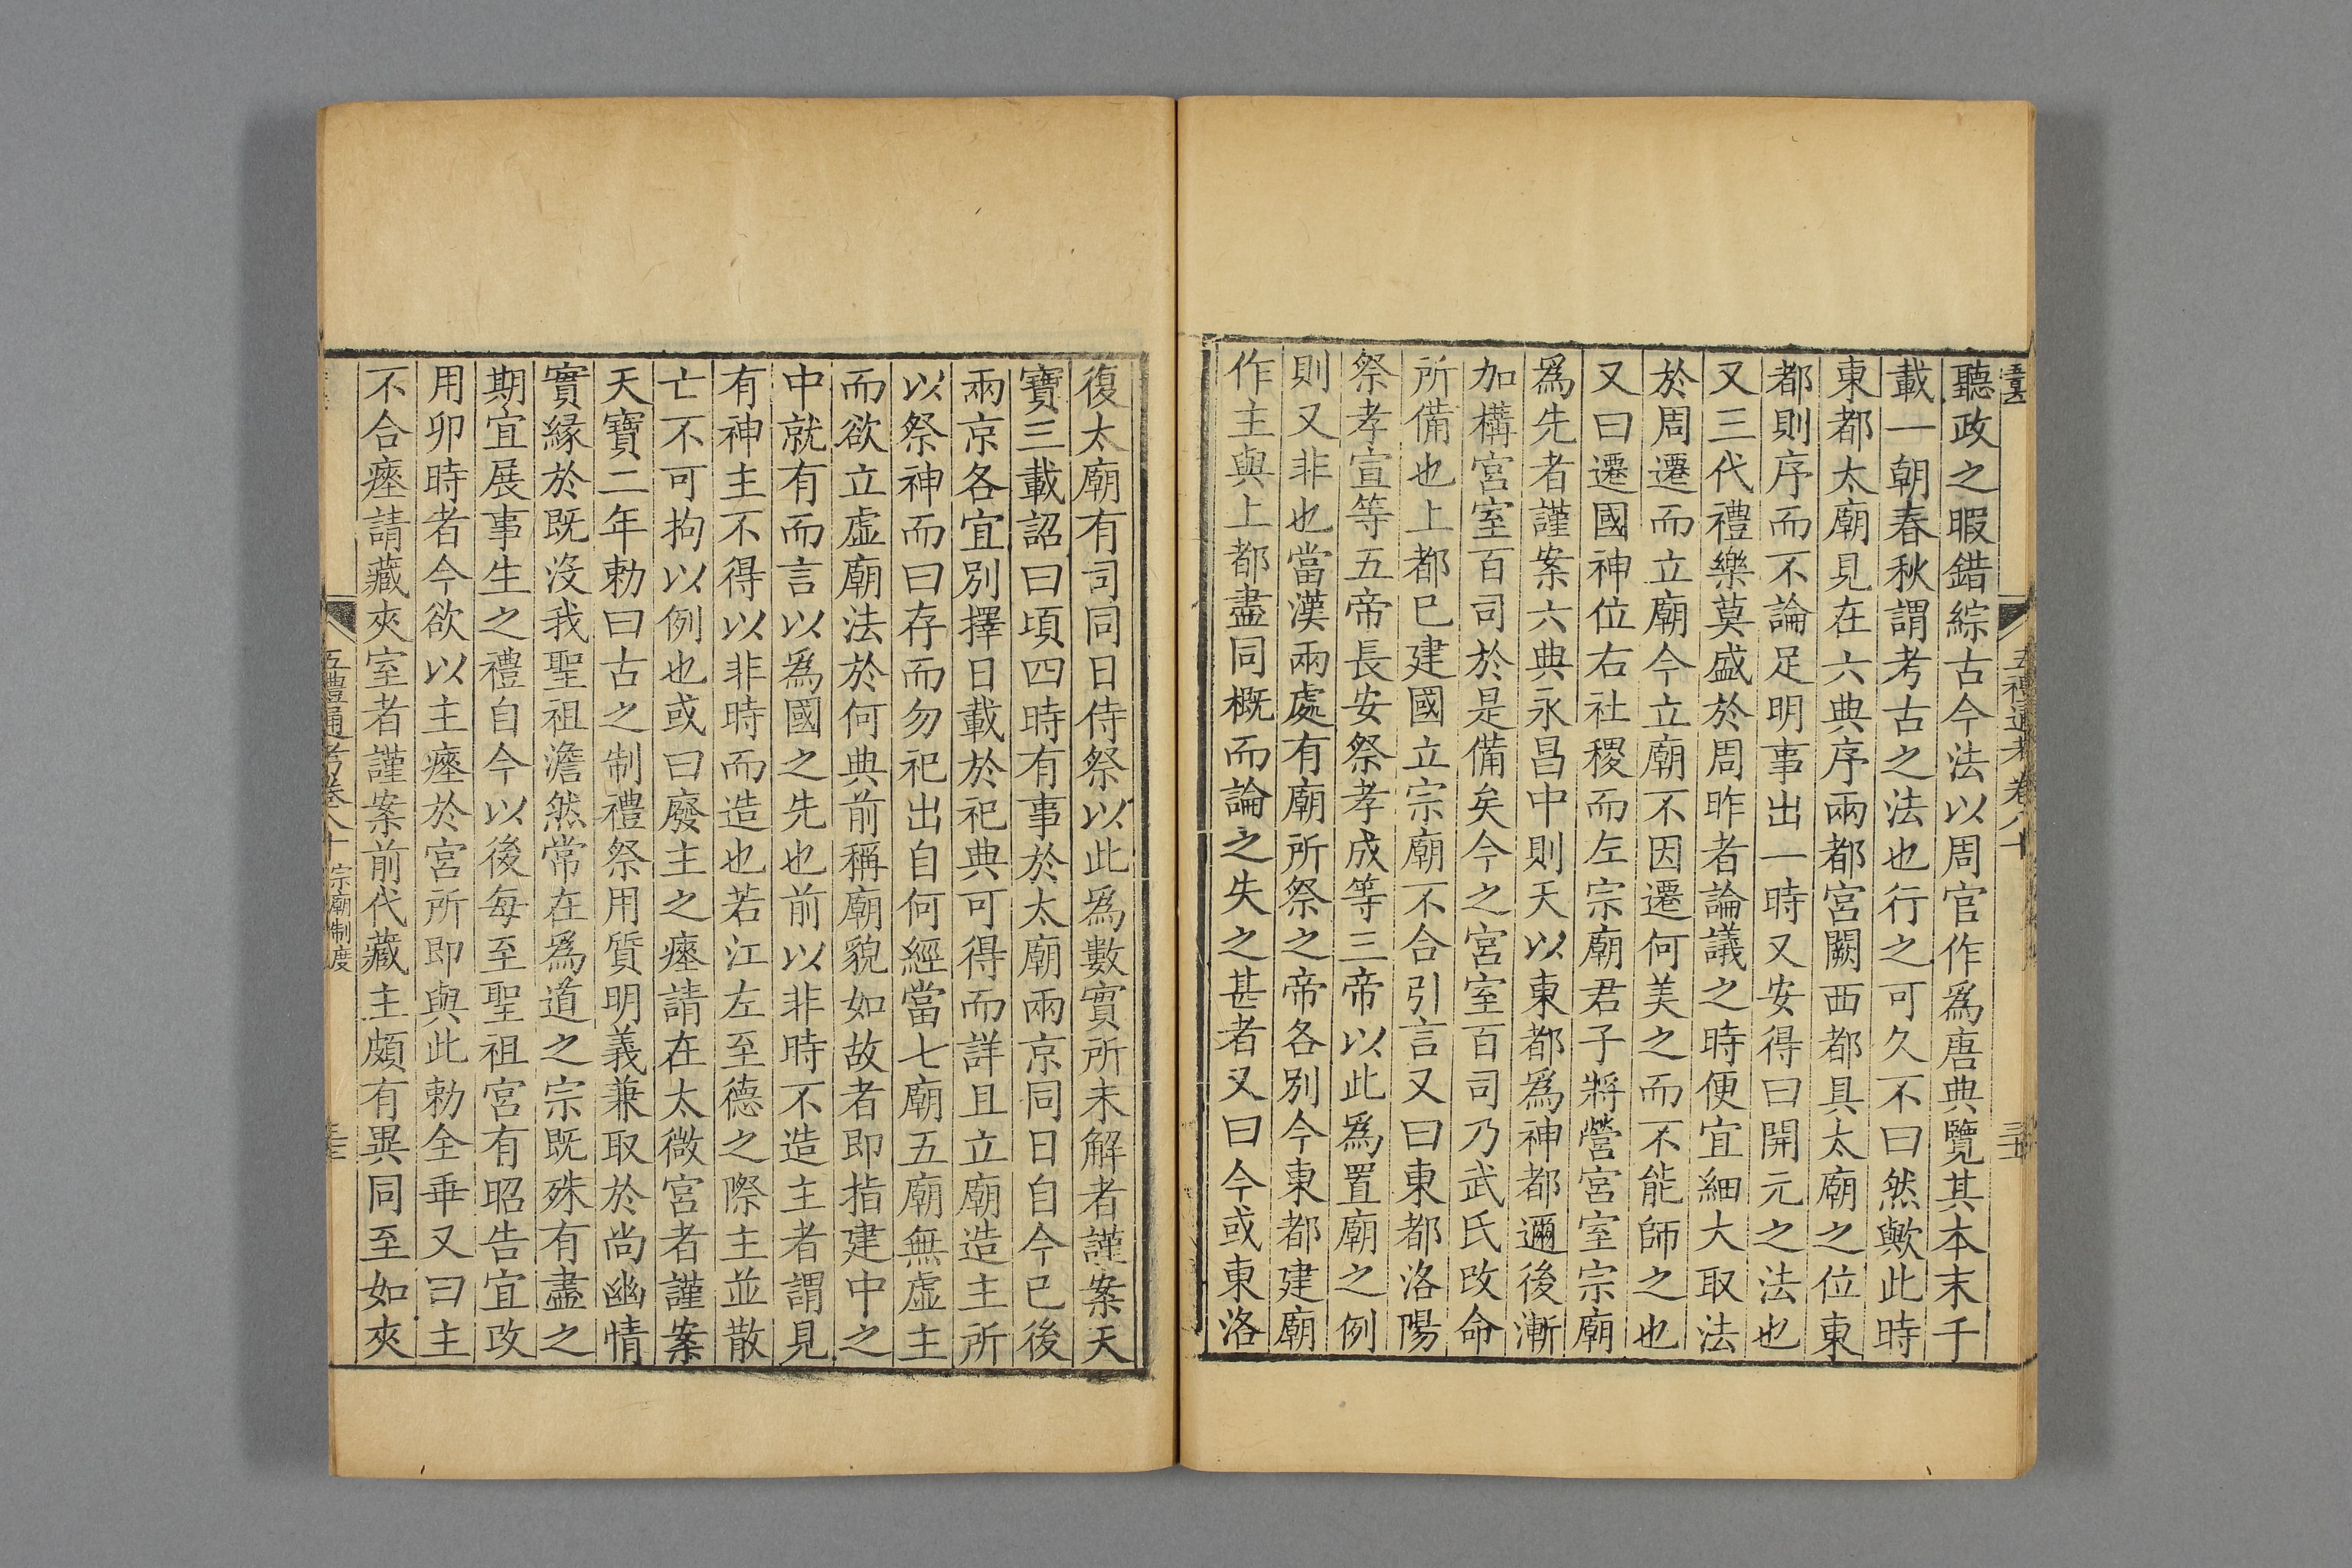 聽政之暇錯綜古今法以周官作爲唐典覽其本末千
載一朝春秋謂考古之法也行之可久不曰然歟此時
東都太廟見在六典序兩都宮闕西都具太廟之位東
都則序而不論足明事出一時又安得曰開元之法也
又三代禮樂莫盛於周昨者論議之時便宜細大取法
於周遷而立廟今立廟不因遷何美之而不能師之也
又曰遷國神位右社稷而左宗廟君子將營宮室宗廟
爲先者謹案六典永昌中則天以東都爲神都邇後漸
加構宮室百司於是備矣今之宮室百司乃武氏改命
所備也上都已建國立宗廟不合引言又曰東都洛陽
祭孝宣等五帝長安祭孝成等三帝以此爲置廟之例
則又非也當漢兩處有廟所祭之帝各別今東都建廟
作主與上都盡同概而論之失之甚者又曰今或東洛
復太廟有司同日侍祭以此爲數實所未解者謹案天
寶三載詔曰頃四時有事於太廟兩京同日自今已後
兩京各宜別擇日載於祀典可得而詳且立廟造主所
以祭神而曰存而勿祀出自何經當七廟五廟無虛主
而欲立虛廟法於何典前稱廟貌如故者即指建中之
中就有而言以爲國之先也前以非時不造主者謂見
有神主不得以非時而造也若江左至德之際主並散
亡不可拘以例也或曰廢主之瘞請在太微宮者謹案
天寶二年勅曰古之制禮祭用質明義兼取於尚幽情
實緣於既沒我聖祖澹然常在爲道之宗既殊有盡之
期宜展事生之禮自今以後每至聖祖宮有昭告宜改
用卯時者今欲以主瘞於宮所即與此勅全乖又曰主
不合瘞請藏夾室者謹案前代藏主頗有異同至如夾
五禮通考卷八十 宗廟制度